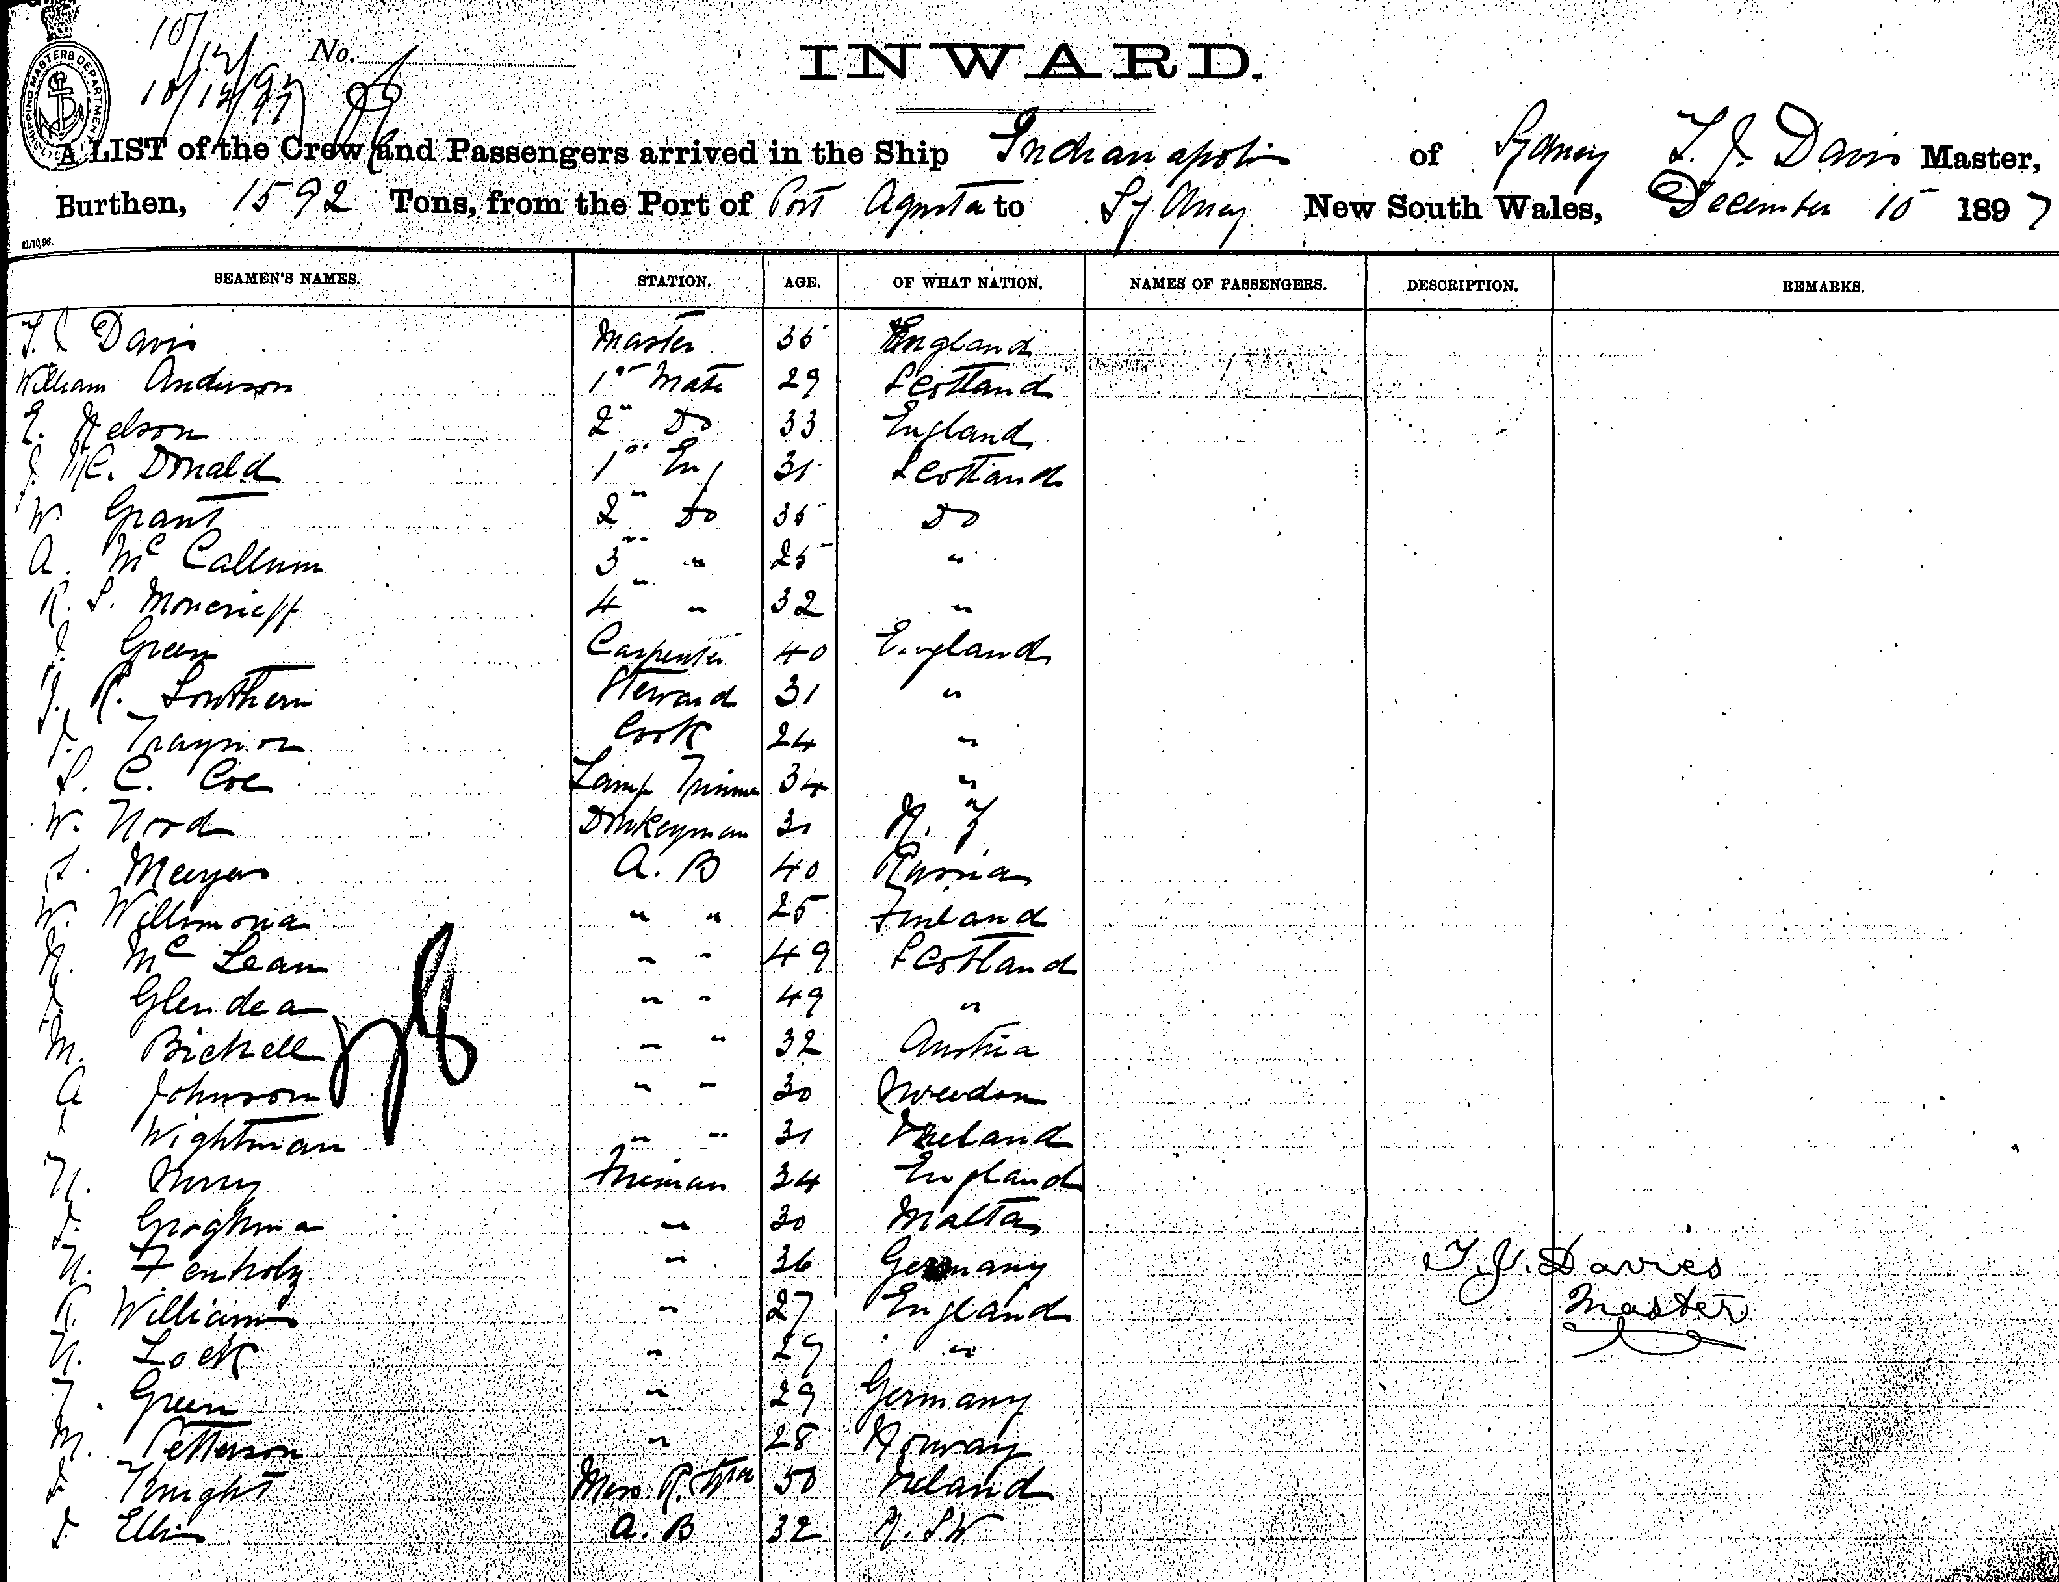 SHIPPING MASTERS DEPARTMENT
15/12/97 No.
15/12/97
INWARD.
A LIST of the Crew and Passengers arrived in the Ship Indianapolis of Sydney T. J. Davis Master,
Burthen, 1592 Tons, from the Port of Port Agusta to Sydney New South Wales, December 15 1897
SEAMEN'S NAMES. STATION. AGE. OF WHAT NATION. NAMES OF PASSENGERS. DESCRIPTION. REMARKS.
T. J Davis Master 35 England
William Anderson 1st Mate 29 Scotland
E. Nelson 2nd Do 33 England
J. McDonald 1st Eng 31 Scotland
W Grant 2nd Do 35 Do
A. McCallum 3rd " 25 "
R. S. Moncrieff 4th " 32 "
J. Green Carpenter 40 England
J. R. Southern Steward 31 "
J. Traynor Cook 24 "
S. C. Coe Lamp Trimmer 34 "
W. Nord Donkeyman 31 N. Z
Meyer A. B 40 Russia
W. " " 25 Finland
N. McLean " " 49 Scotland
J Glendea " " 49 "
M. Bichell " " 32 Austria
A Johnson " " 30 Sweden
Wightman " " 31 Ireland
H. Fireman 34 England
" 30 Malta
H. Fenholz " 36 Germany
R. Williams " 27 England
H. Lock " 29 "
T. Green " 29 Germany
M. Petterson " 28 Norway
Knight Mess R. Stwd 50 Ireland
J Ellis A. B 32 N. S. W
T. J. Davies
Master